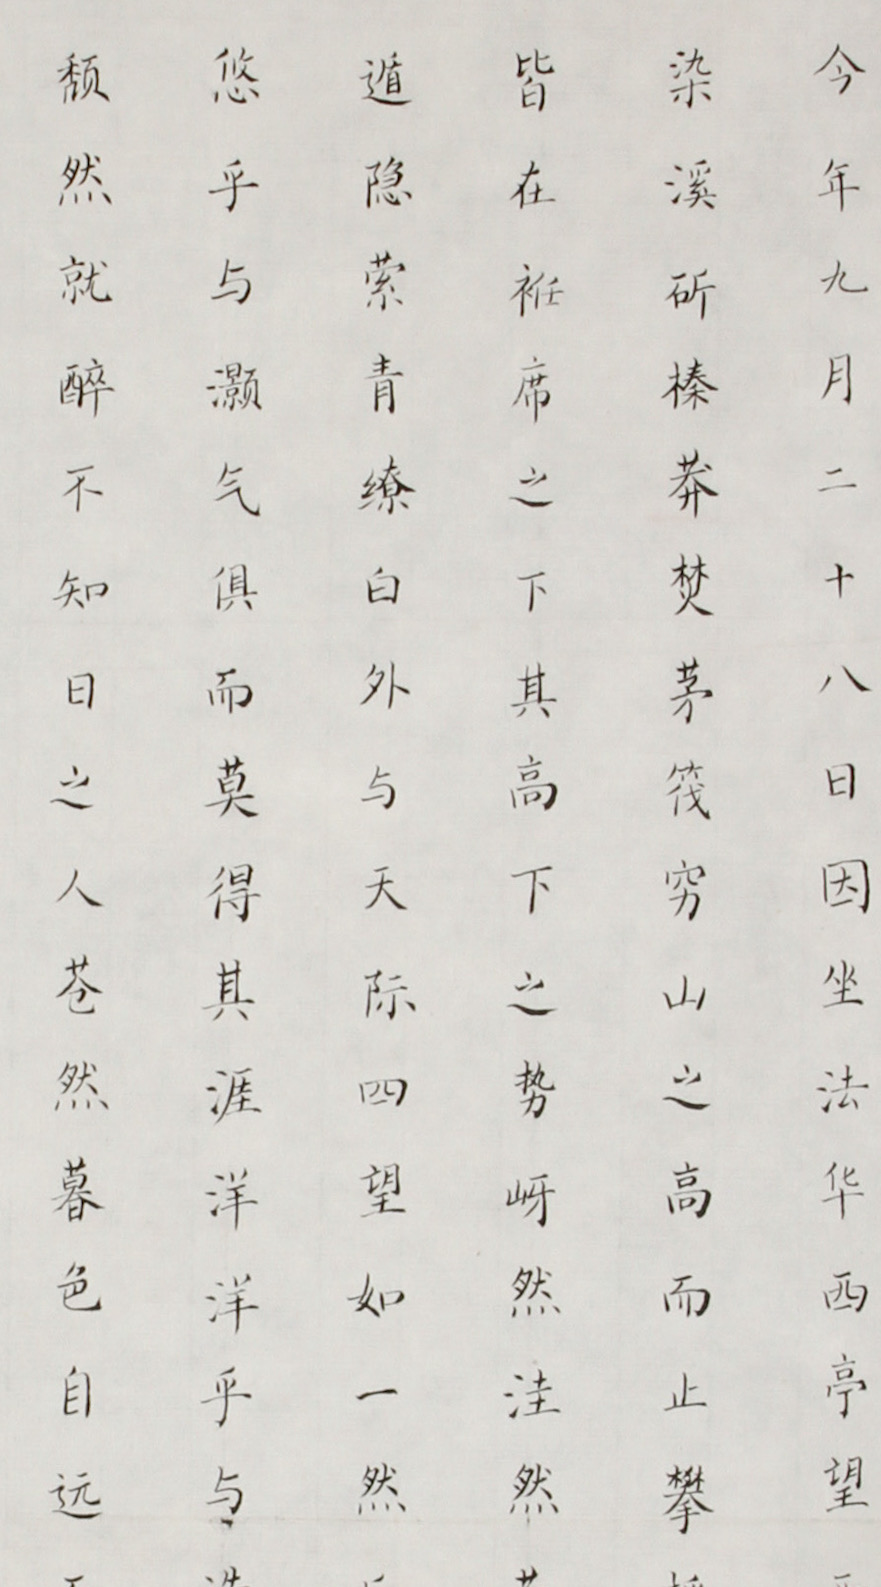 今年九月二十八日因坐法华西亭望
染溪斫榛莽焚茅筏穷山之高而止攀
皆在袵席之下其高下之势岈然洼然
遁隐萦青缭白外与天际四望如一然
悠乎与灏气俱而莫得其涯洋洋乎与
颓然就醉不知日之人苍然暮色自远